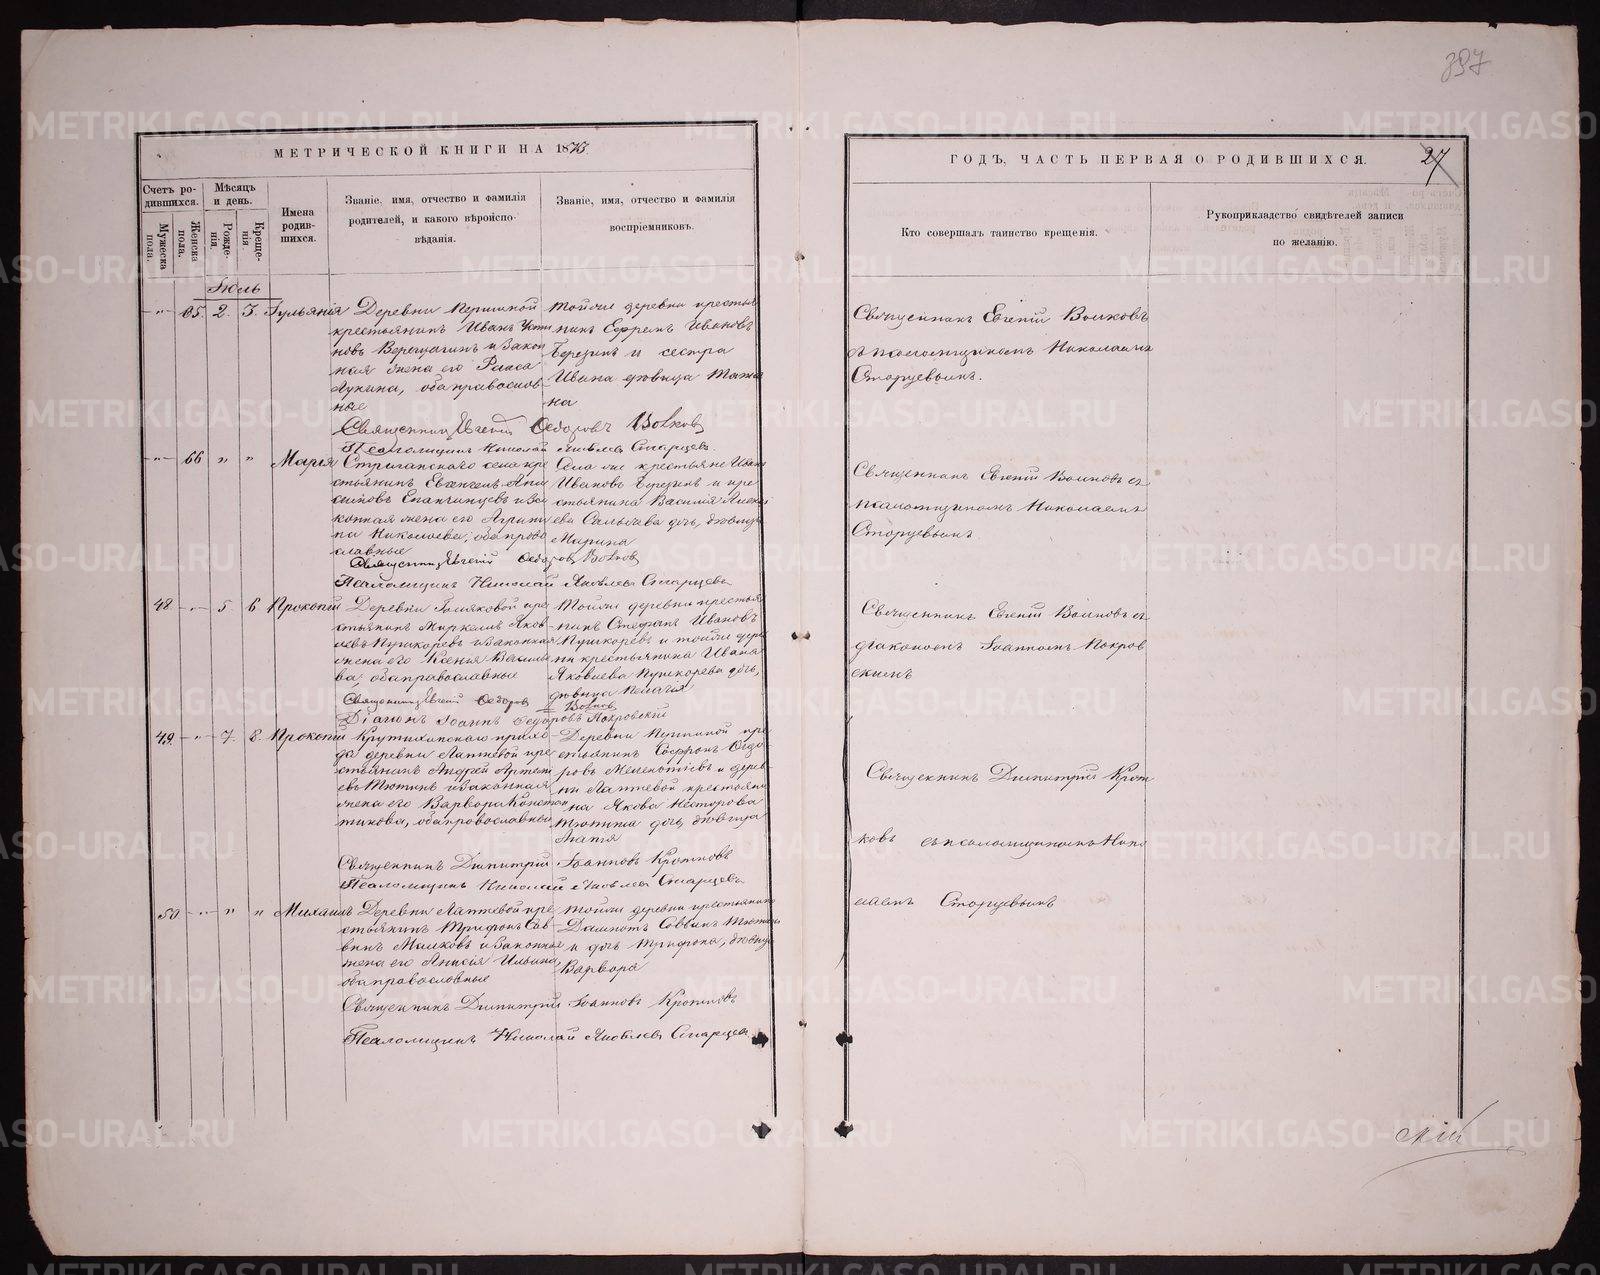 397
МЕТРИЧЕСКОЙ КНИГИ НА 1875
ГОДЪ, ЧАСТЬ ПЕРВАЯ О РОДИВШИХСЯ.
27
Счетъ родившихся.
Мужеска пола.
Женска пола.
Мѣсяцъ и день.
Рожденія.
Крещенія.
Имена родившихся.
Званіе, имя, отчество и фамилія
родителей, и какого вѣроиспо-
вѣданія.
Званіе, имя, отчество и фамилія
воспріемниковъ.
Кто совершалъ таинство крещенія.
Рукоприкладство свидѣтелей записи
по желанію.
Іюль
65. 2. 3. Іульянія
Деревни
крестьянинъ Иванъ
новъ Верещагинъ и закон
ная жена его Раиса
Лукина, оба православ-
ные
Тойже деревни крестья
нинъ Ефремъ Ивановъ
Березинъ и сестра
Ивана дѣвица Татья
на
Священникъ Евгеній Ѳедоровъ Волковъ
Псаломщикъ Николай Яковлевъ Старцевъ.
Священникъ Евгеній Волковъ
съ псаломщикомъ Николаемъ
Старцевымъ.
66 " " Марія
Стриганскаго села кре
стьянинъ Евгенъ
Епанчинцевъ и за
конная жена его Агрипи
на Николаева, оба право
славные
Села же крестьяне Иванъ
Ивановъ Березинъ и кре
стьянина Василія Алексѣ
ева дочь, дѣвица
Марина
Священникъ Евгеній Ѳедоровъ Волковъ
Псаломщикъ Николай Яковлевъ Старцевъ
Священникъ Евгеній Волковъ съ
псаломщикомъ Николаемъ
Старцевымъ
48 5 6 Прокопій
Деревни кре
стьянинъ Маркелъ Яков
левъ Пушкаревъ и законная
жена его Ксенья Василье
ва, оба православные
Тойже деревни крестья
нинъ Стефанъ Ивановъ
Пушкаревъ и тойже дерев
ни крестьянина Ивана
Яковлева Пушкарева дочь,
дѣвица Пелагія
Священникъ Евгеній Ѳедоровъ Волковъ
Діаконъ Іоаннъ Ѳедоровъ Покровскій
Священникъ Евгеній Волковъ съ
діакономъ Іоанномъ Покров
скимъ
49. 7. 8. Прокопій
Крутихинскаго прихо-
да деревни Лаптевой кре
стьянинъ Андрей Артемь
евъ Тютинъ и законная
жена его Варвара Констан
тинова, оба православные
Деревни кре
стьянинъ Софронъ Ѳедо
ровъ и дерев
ни Лаптевой крестьяни
на Якова Несторова
Тютина дочь, дѣвица
Агапія
Священникъ Димитрій Іоанновъ Кротковъ
Псаломщикъ Николай Яковлевъ Старцевъ
Священникъ Димитрій Крот
ковъ съ псаломщикомъ Нико
лаемъ Старцевымъ
50 " " Михаилъ
Деревни Лаптевой кре
стьянинъ Трифонъ Сав-
винъ Малковъ и законная
жена его Анисія Ильина,
оба православные
Тойже деревни крестьянинъ
Савинъ Тютинъ
и дочь Трифона, дѣвица
Варвара
Священникъ Димитрій Іоанновъ Кротковъ
Псаломщикъ Николай Яковлевъ Старцевъ
METRIKI.GASO-URAL.RU